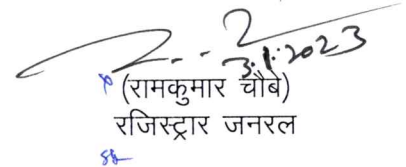 3.1.2023
(रामकुमार चौबे)
रजिस्ट्रार जनरल